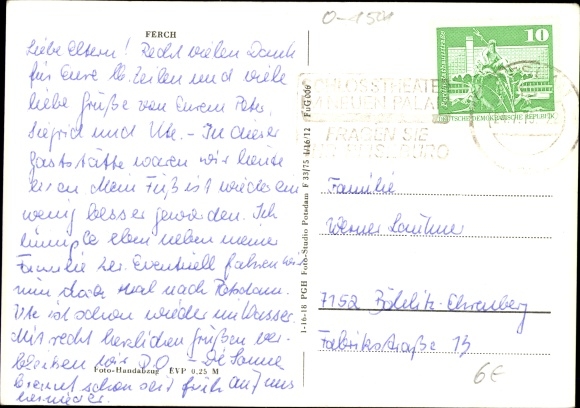 O-1501
FERCH
Liebe Eltern! Recht vielen Dank
für Eure lb. Zeilen und viele
liebe Grüße von Eurem Peter,
Siegrid und Ute. - In dieser
Gaststätte waren wir heute
essen. Mein Fuß ist wieder ein
wenig besser geworden. Ich
eben neben meiner
Familie her. Eventuell fahren wir
nun doch mal nach Potsdam.
Ute ist schon wieder im Wasser.
Mit recht herzlichen Grüßen ver-
bleiben wir Die Sonne
brennt schon seit früh auf uns
hernieder.
Foto-Handabzug EVP 0,25 M
1-16-18 PGH Foto-Studio Potsdam F 33/75 I/16/12 FuG 006
SCHLOSSTHEATER
NEUEN PALAIS
FRAGEN SIE
10
Berlin, Rathausstraße
DEUTSCHE DEMOKRATISCHE REPUBLIK
Familie
Werner
7152 Böhlitz-Ehrenberg
Fabrikstraße 13
6€